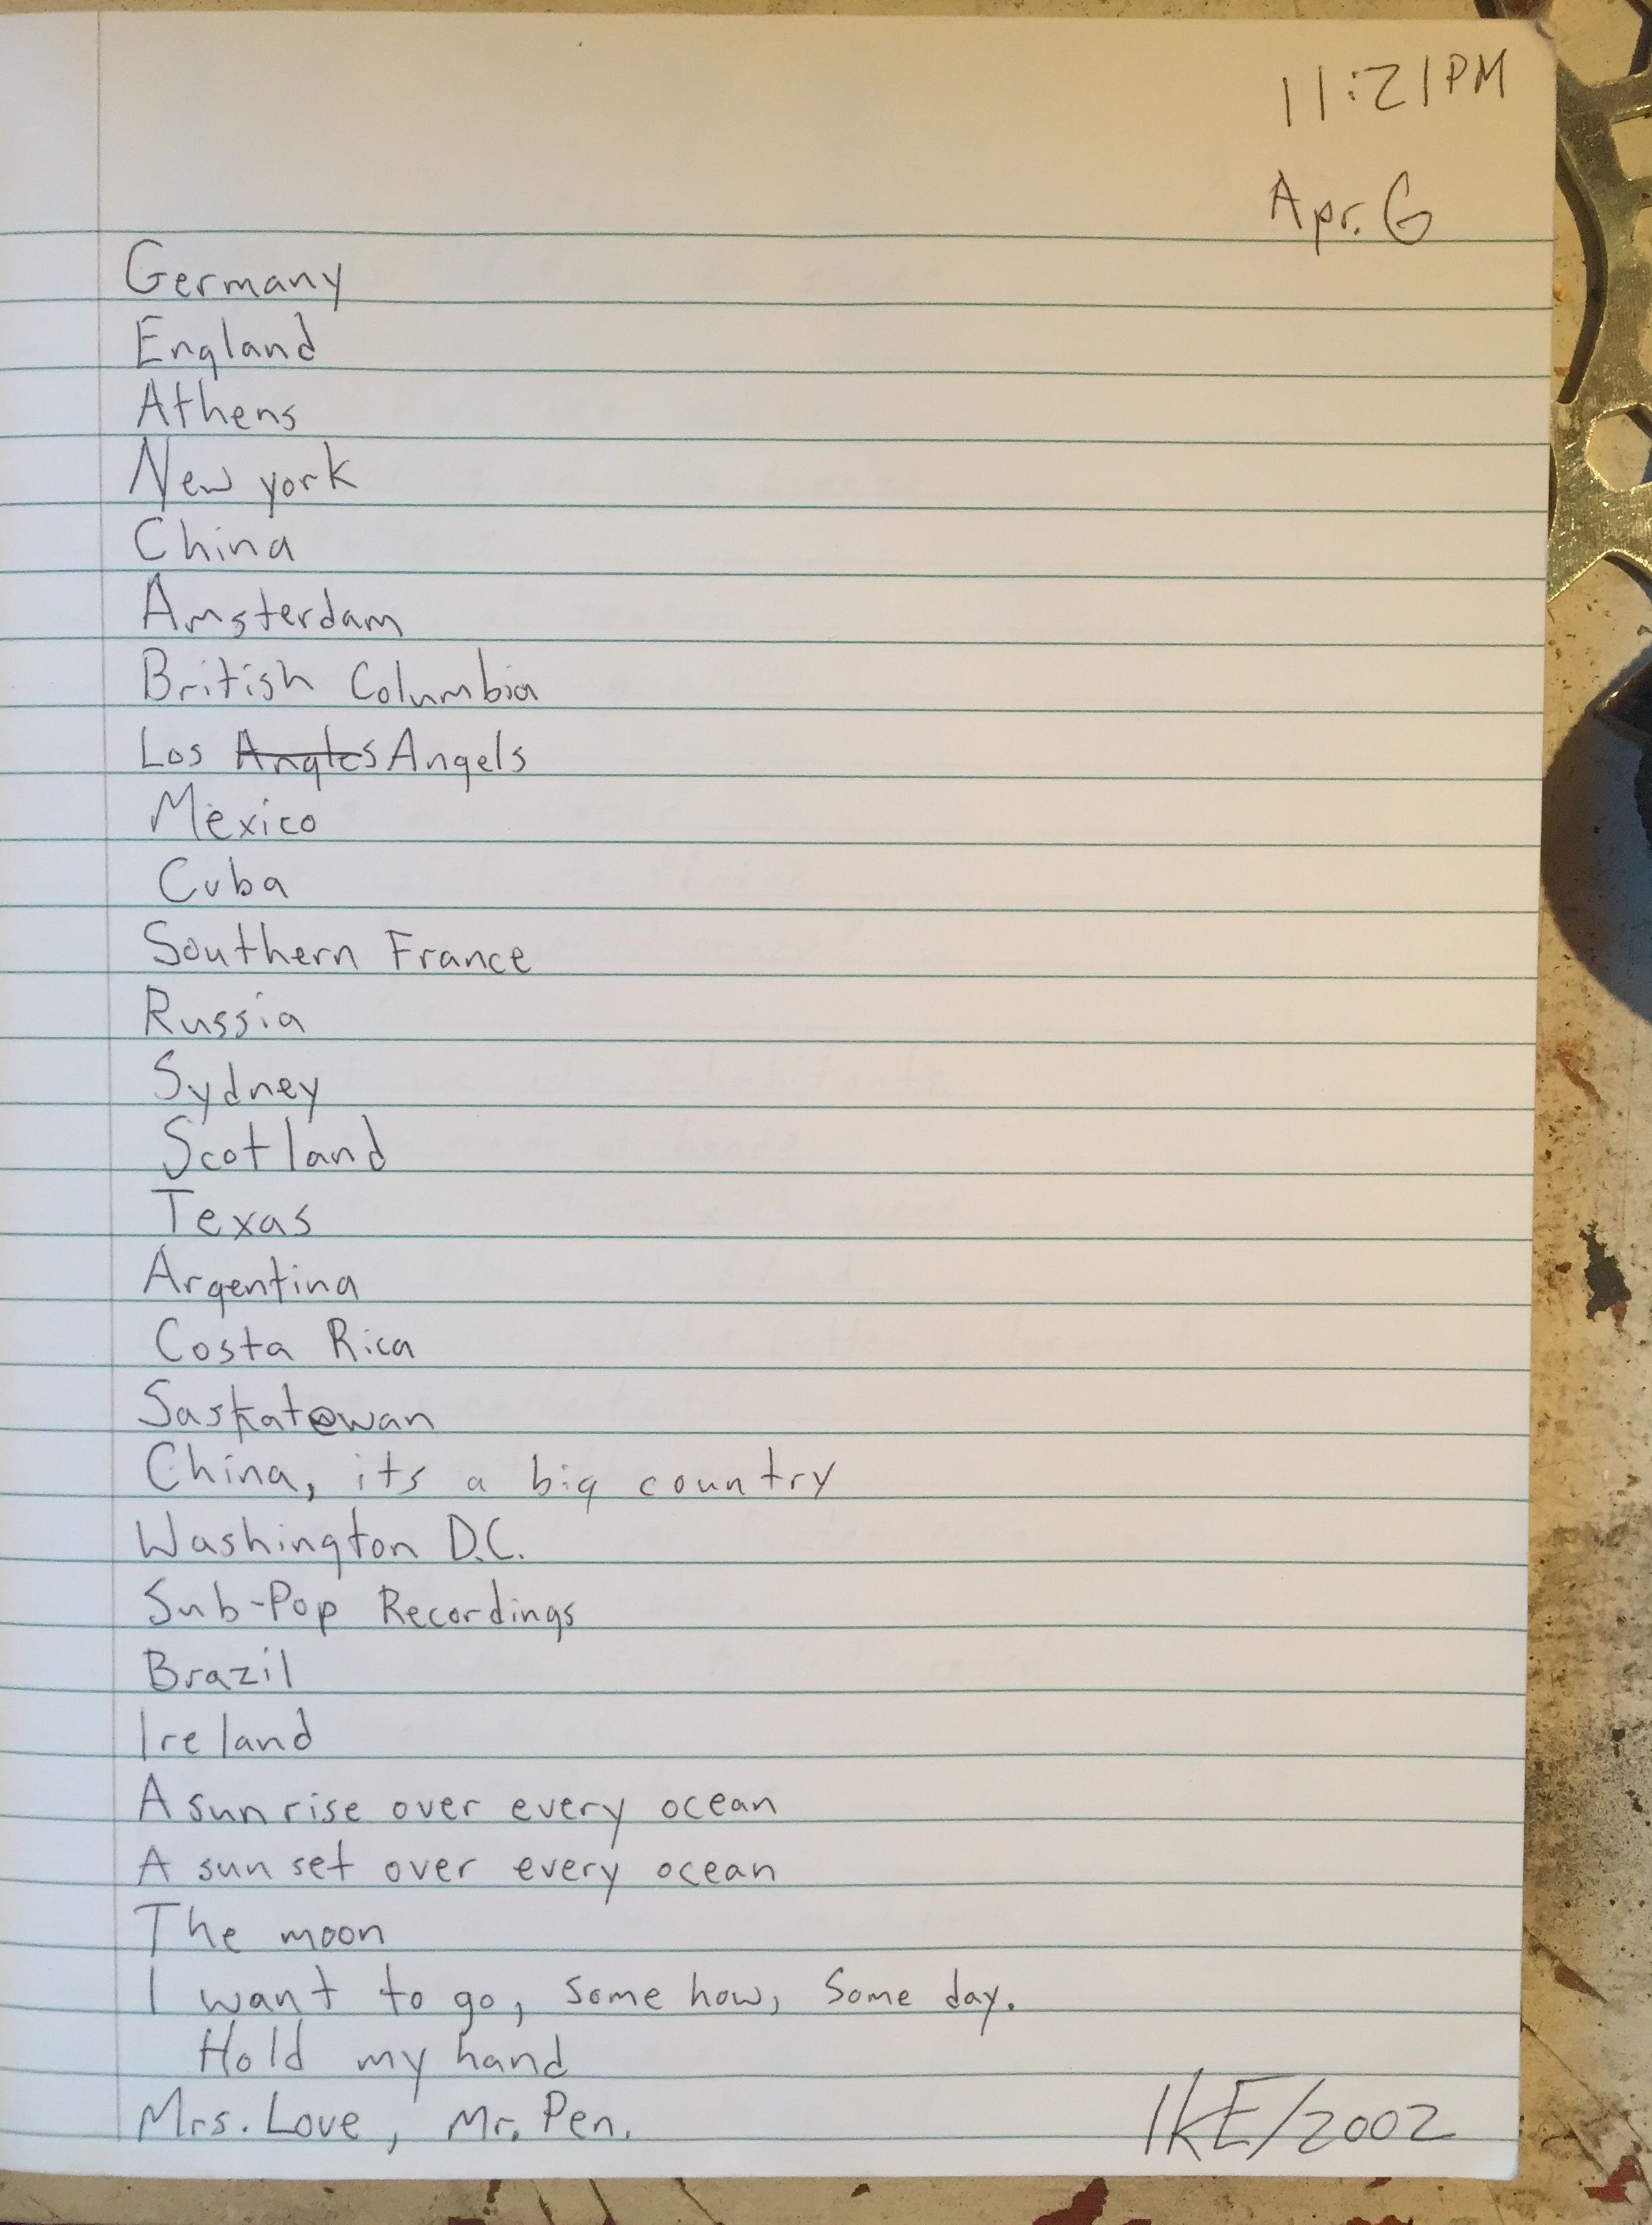 11:21PM
Apr. 6
Germany
England
Athens
New york
China
Amsterdam
British Columbia
Los Angles Angels
Mexico
Cuba
Southern France
Russia
Sydney
Scotland
Texas
Argentina
Costa Rica
Saskatewan
China, its a big country
Washington D.C.
Sub-Pop Recordings
Brazil
Ireland
A sunrise over every ocean
A sun set over every ocean
The moon
I want to go, some how, Some day.
Hold my hand
Mrs. Love, Mr. Pen.
IKE/2002